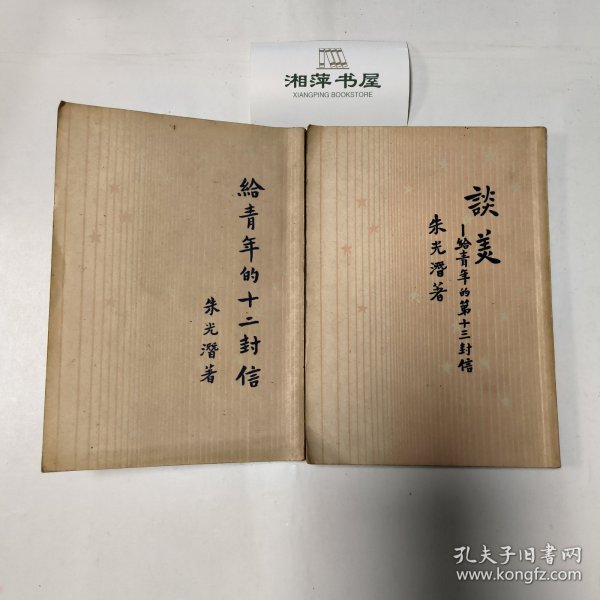 湘萍书屋
XIANGPING BOOKSTORE
給青年的十二封信
朱光潛著
談美
—給青年的第十三封信
朱光潛著
孔夫子旧书网
www.kongfz.com